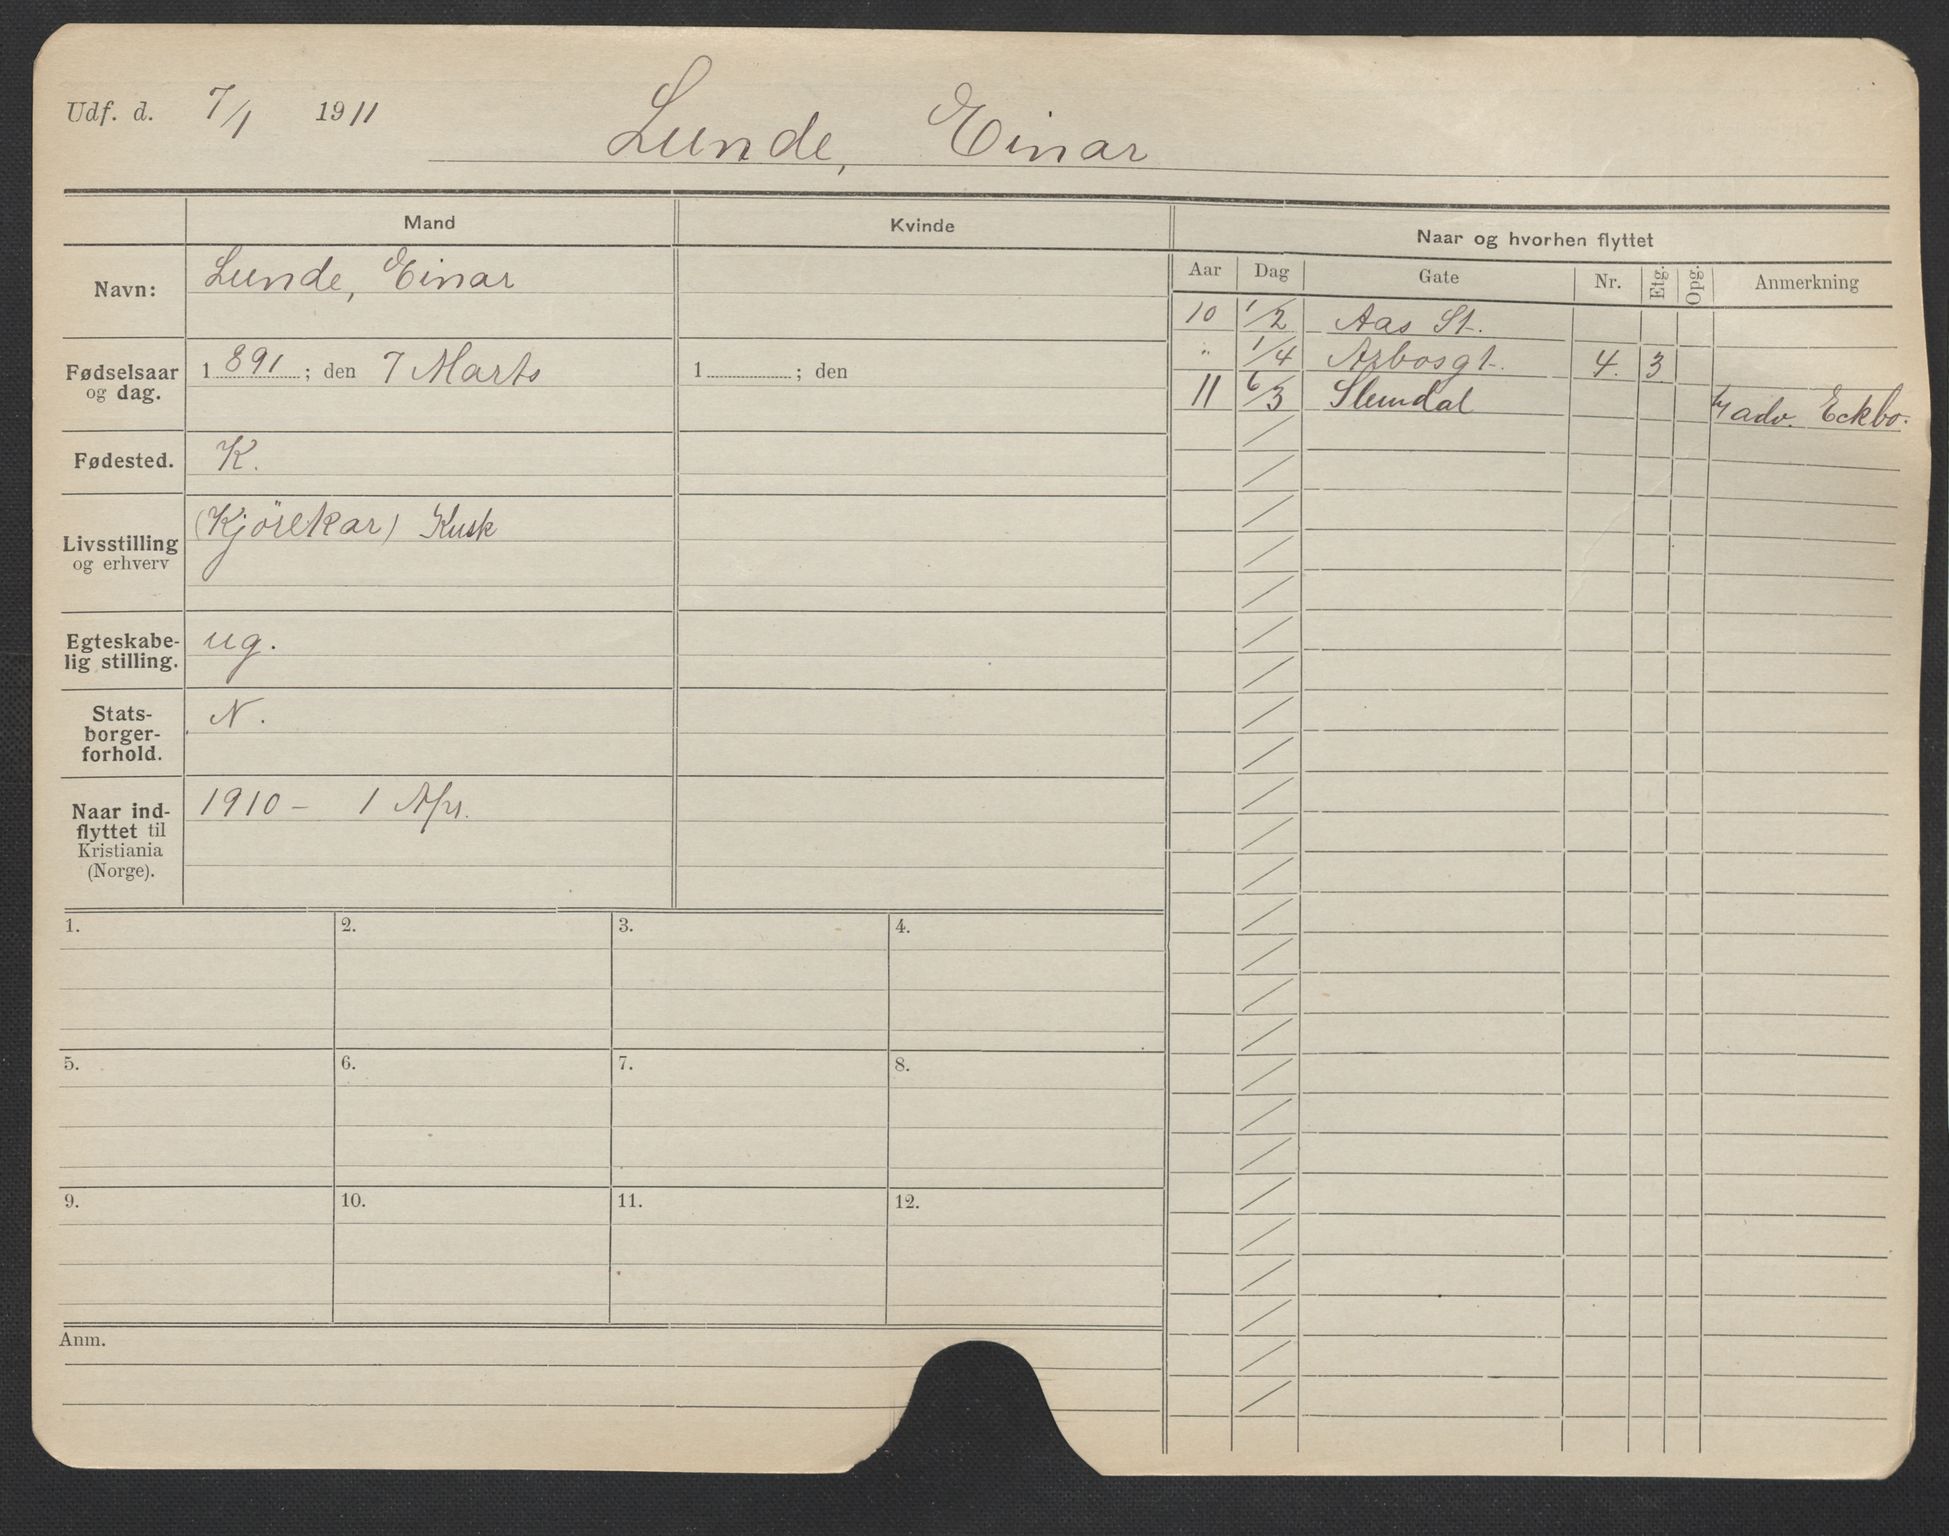 Udf. d. 7/1 1911
Lunde, Einar
Mand
Kvinde
Naar og hvorhen flyttet
Navn:
Lunde, Einar
Fødselsaar og dag.
1 891 ; den 7 Marts
1 ; den
Fødested.
K.
Livsstilling og erhverv
(Kjörekar) Kusk
Egteskabe-
lig stilling.
ug.
Stats-
borger-
forhold.
N.
Naar ind-
flyttet til
Kristiania
(Norge).
1910 – 1 Apr.
Aar Dag Gate Nr. Etg. Opg. Anmerkning
10 1/2 Aas St.
" 1/4 Arbosgt. 4. 3
11 6/3 Slemdal adv. Eckbo.
1. 2. 3. 4.
5. 6. 7. 8.
9. 10. 11. 12.
Anm.